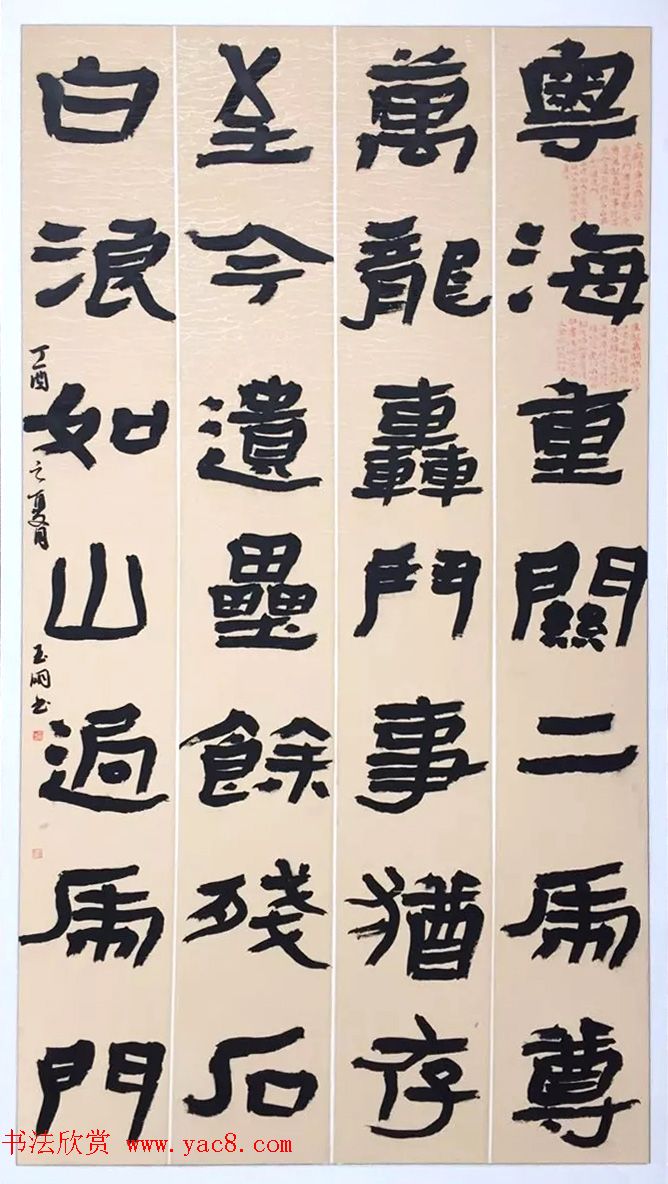 粵海重關二虎尊
萬龍轟鬥事猶存
至今遺壘餘殘石
白浪如山過虎門
丁酉之夏月玉明书
书法欣赏 www.yac8.com